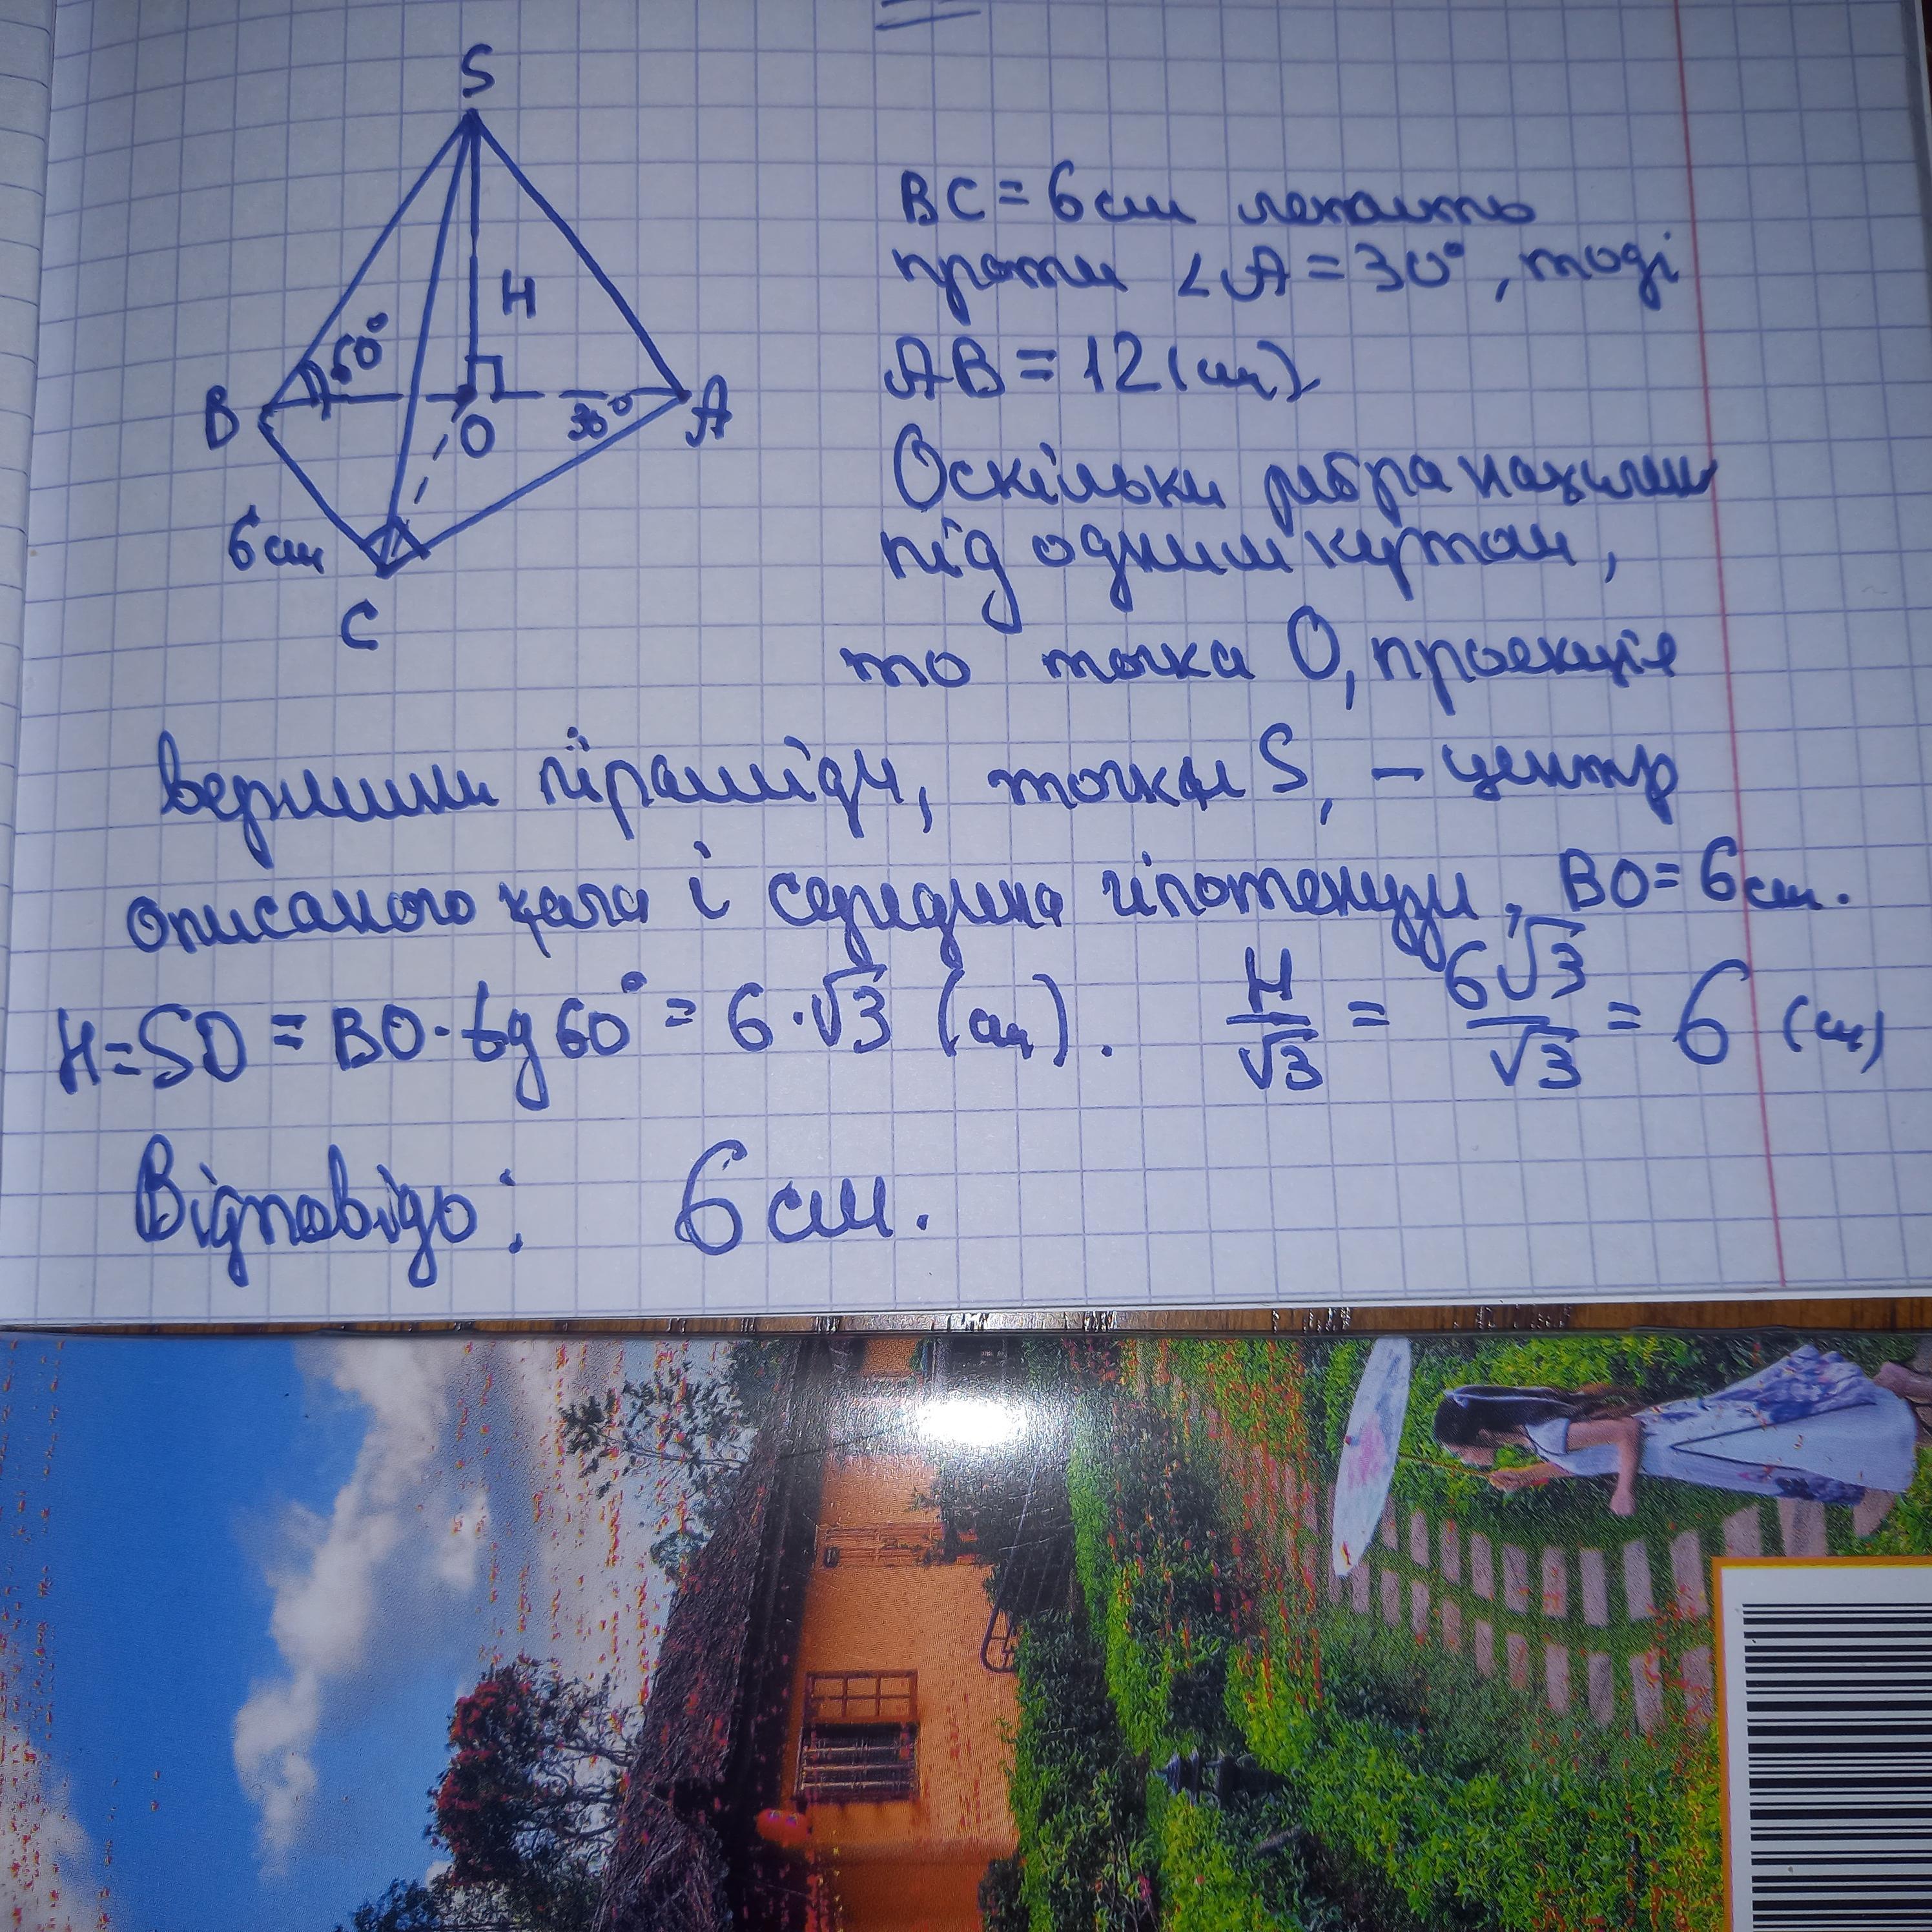 S
H
60°
B
O
30°
A
6 см
C
BC = 6 см лежить
проти ∠A = 30°, тоді
AB = 12 (см).
Оскільки ребра нахилені
під одним кутом,
то точка O, проекція
вершини піраміди, точки S, – центр
описаного кола і середина гіпотенузи, BO = 6 см.
H = SO = BO · tg 60° = 6 · √3 (см). H/√3 = 6√3/√3 = 6 (см)
Відповідь: 6 см.